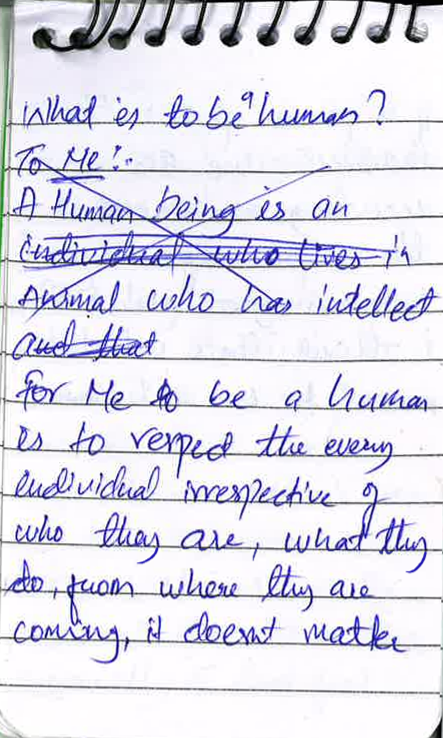 What is to be a human?
To Me:-
A Human being is an
individual who lives in
Animal who has intellect
and that
for Me to be a human
is to respect the every
individual irrespective of
who they are, what they
do, from where they are
coming, it doesnt matter